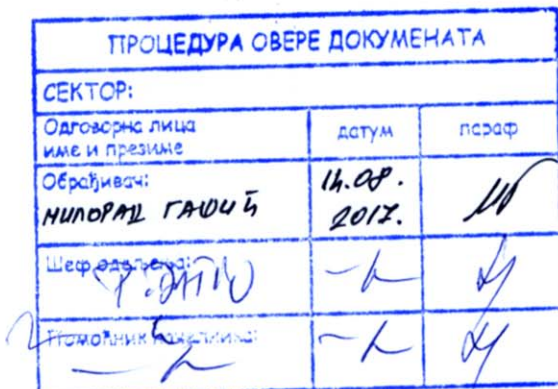 ПРОЦЕДУРА ОВЕРЕ ДОКУМЕНАТА
СЕКТОР:
Одговорна лица
име и презиме
датум
параф
Обрађивач:
МИЛОРАД ГАШИЋ
14.08.
2017.
Шеф одељења:
Помоћник начелника: